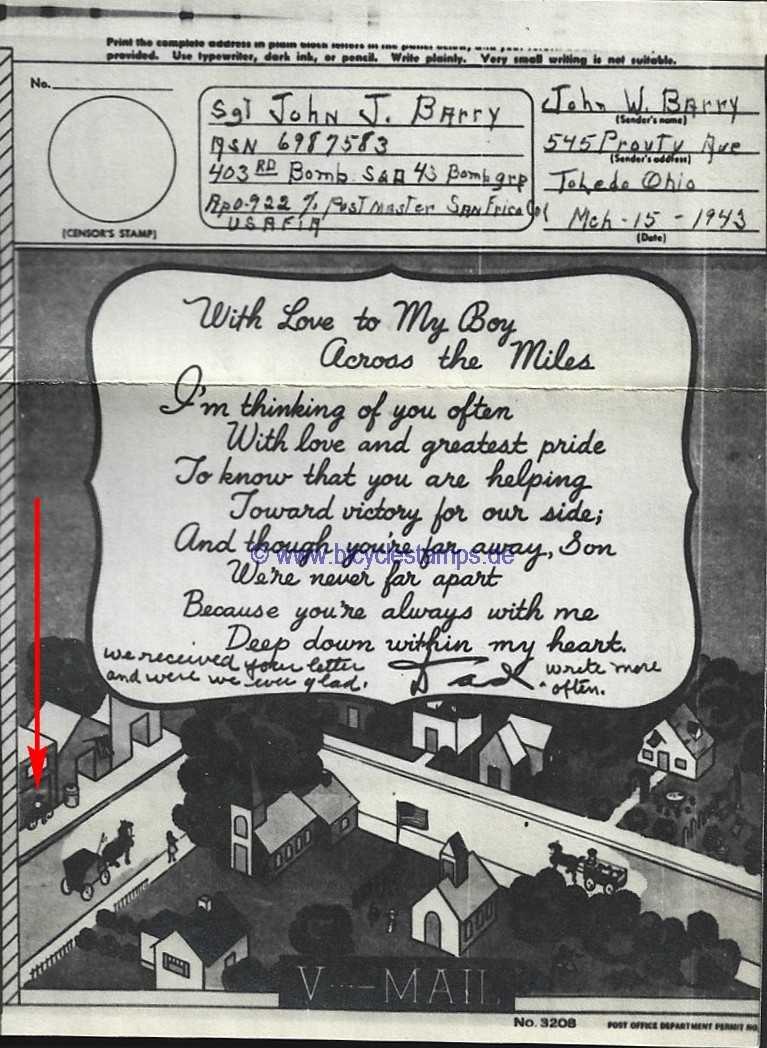 Print the complete address in plain block letters in the panel below, and your return
provided. Use typewriter, dark ink, or pencil. Write plainly. Very small writing is not suitable.
No.
[CENSOR'S STAMP]
Sgt John J. Barry
ASN 6987583
403 RD Bomb SqD 43 Bomb grp
APO-922 % PostMaster San
USAFIA
John W. Barry
(Sender's name)
545 Prouty Ave
(Sender's address)
Toledo Ohio
Mch-15-1943
(Date)
With Love to My Boy
Across the Miles
I'm thinking of you often
With love and greatest pride
To know that you are helping
Toward victory for our side;
And though you're far away, Son
We're never far apart
Because you're always with me
Deep down within my heart.
© www.bicyclestamps.de
we received your letter
and were we ever glad.
Dad
write more
often.
V···—MAIL
No. 3208
POST OFFICE DEPARTMENT PERMIT NO